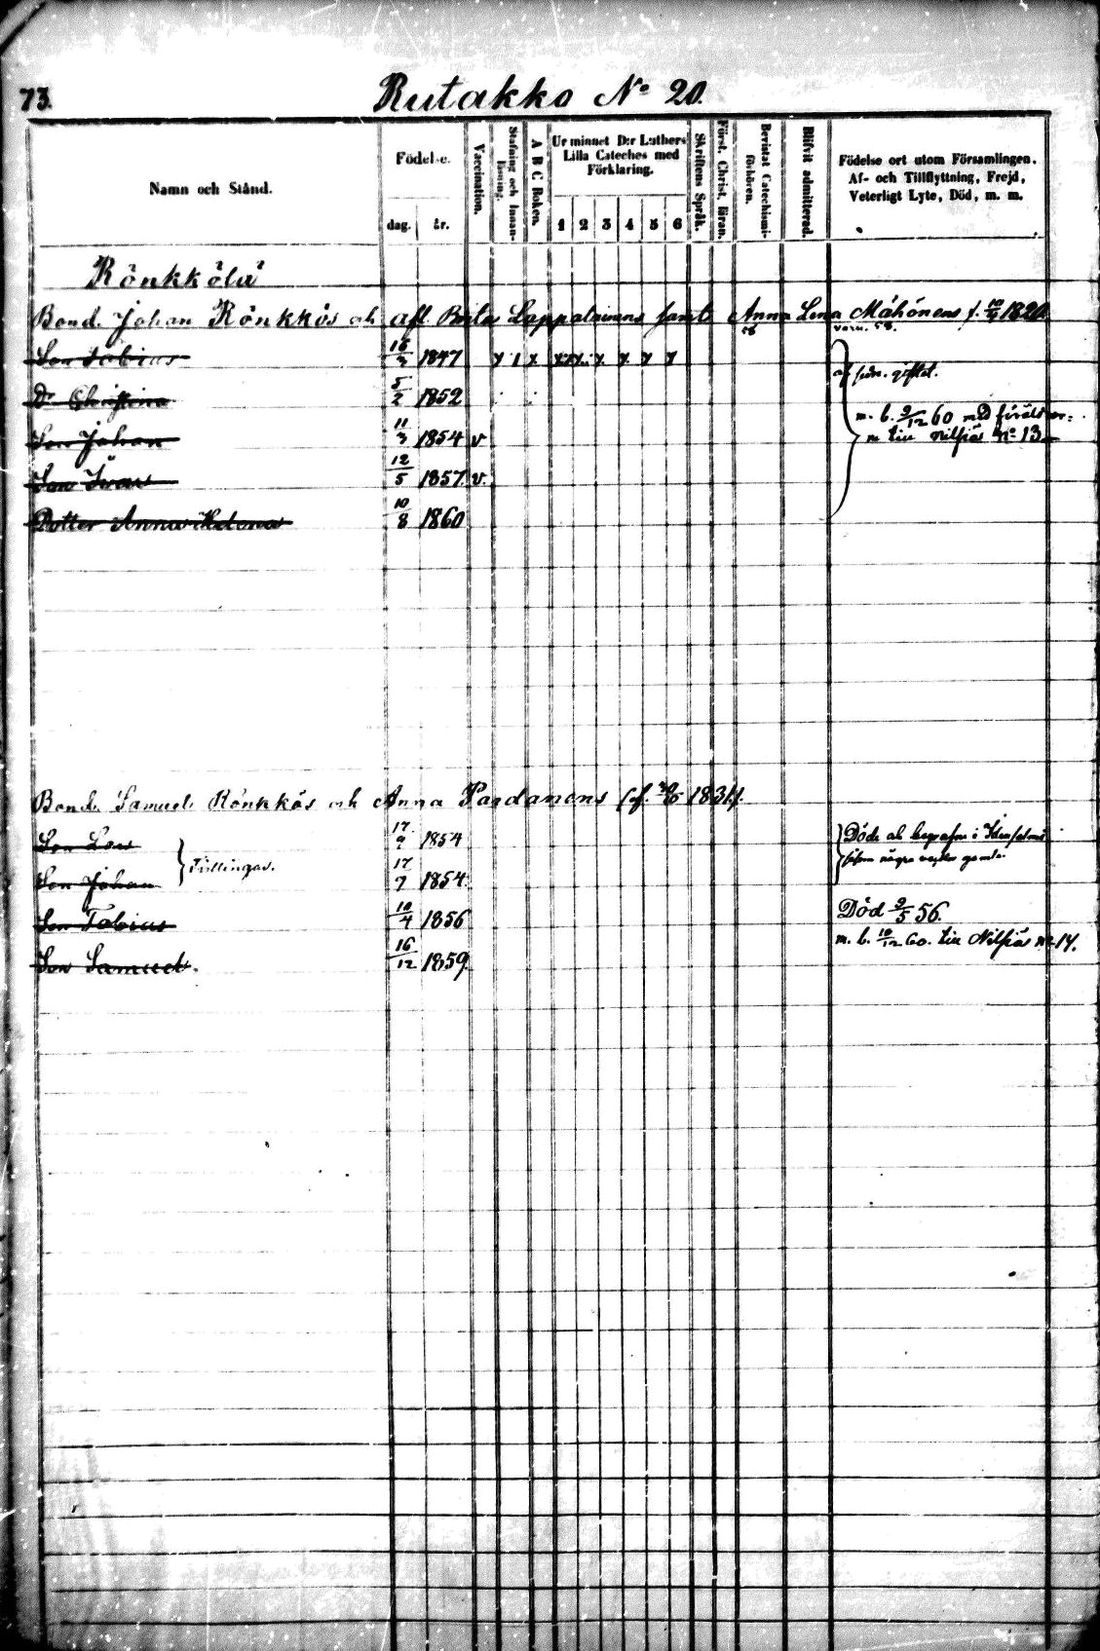 73.
Rutakko No 20.
Namn och Stånd.
Födelse.
dag. år.
Vaccination.
Stafning och Innan-
läsning.
A B C. Boken.
Ur minnet D:r Luthers
Lilla Cateches med
Förklaring.
1 2 3 4 5 6
Skriftens Språk.
Först. Christ. läran.
Bevistat Catechismi-
förhören.
Blifvit admitterad.
Födelse ort utom Församlingen.
Af- och Tillflyttning, Frejd,
Veterligt Lyte, Död, m. m.
Rönkkölä
Bond. Johan Rönkkös och afl. Brita Lappalainens samt Anna Lena Mähönens f. 1820.
Son Tobias 1847
Dr Christina 5/2 1852
Son Johan 11/3 1854 v
m. b. 9/12 60 med föräldrar:
n till Nilsiä No 13
Son Ivar 12/5 1857 v.
Dotter Anna Helena 10/8 1860
Bond. Samuel Rönkkös och Anna Pardanens 1831
Son Lars 17/9 1854
Tvillingar.
Son Johan 17/9 1854.
Döde och begrafne i Idensalmi
några veckor gamla.
Son Tobias 10/4 1856
Död 9/5 56.
Son Samuel. 16/12 1859.
m. b. 10/12 60. till Nilsiä No 14.